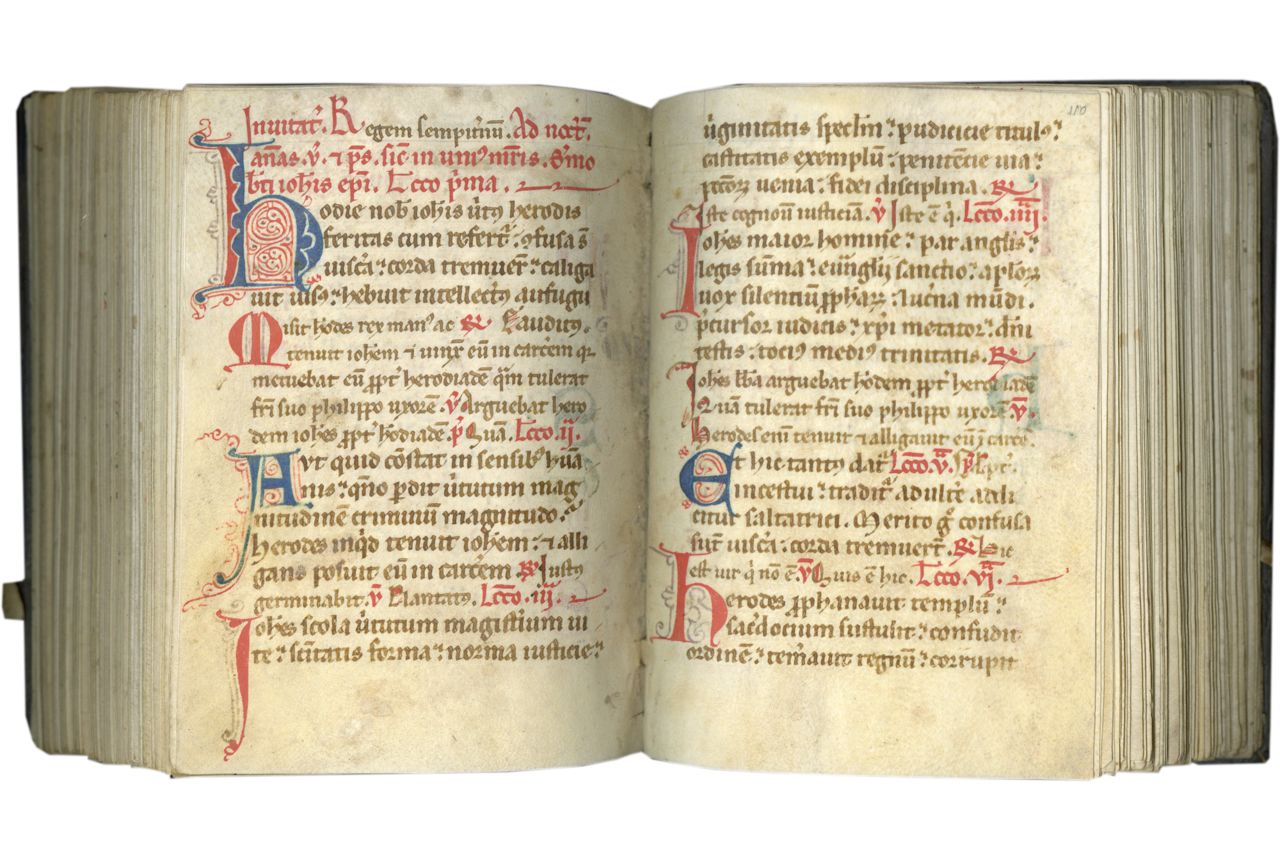 Inuitat᷑. Regem sempit᷑nū. Ad noct᷑.
anas. v᷑. ⁊ p̄s. sic̄ in uni᷒ mr̄is. S᷑mo
bt̄i ioh̄is ep̄i. Lcc̄o p᷑ma.
hodie nob̄ ioh̄is u᷑t᷒ herodis
feritas cum refert᷑. ꝯfusa s̄
uisc᷑a: corda tremuer̄: caliga
uit uis᷒: hebuit intellect᷒ aufugi
Misit h᷑odes rex man᷒ ac ℟ Laudit᷒.
tenuit ioh̄em ⁊ uinx̄ eū in carc᷑em qr
metuebat eū ꝓpt᷑ herodiadē q̄m tulerat
fr̄i suo philippo uxorē. v᷑ Arguebat hero
dem ioh̄es ꝓpt᷑ h᷑odiadē. p᷑ Quā. Lcc̄o .ij.
Aut quid cōstat in sensib᷒ huā
nis: qn̄o ꝑdit u᷑tutum mag
nitudinē criminum magnitudo.
herodes inq̄d tenuit ioh̄em: ⁊ alli
gans posuit eū in carc᷑em ℟ Iust᷒
germinabit. v᷑ Plantat᷒. Lcc̄o .iij.
Ioh̄es scola u᷑tutum magist᷑ium ui
te: sc̄itatis forma: norma iusticie:
100
u᷑ginitatis spectm̄: pudicicie titul᷒:
castitatis exemplū: penitēcie uia:
pc̄cor̄ uenia: fidei disciplina. ℟
Iste cognouit iusticiā. v᷑ Iste ē q᷑. Lcc̄o .iiij.
Ioh̄es maior homine: par angl̄is:
legis sūma: euuāglij sanctio: apl̄or̄
uox silentiū ꝓphar̄: luc᷑na mūdi.
p᷑cursor iudicis: xp̄i metator: dn̄i
testis: toci᷒ medi᷒ trinitatis. ℟
Ioh̄es bb̄a arguebat h᷑odem ꝓpt᷑ herodiadē
Quā tulerat fr̄i suo philippo uxorē v᷑.
Herodes eni᷑ tenuit ⁊ alligauit eū ī carce.
Et hic tant᷒ dat᷑ Lcc̄o .v.
incestui: tradit᷑ adult᷑e addi
citur saltatrici. Merito g̊ confusa
sūt uisc᷑a: corda tremuer̄t. ℟ Hic
est uir q᷑ nō ē v᷑ Quis ē hic. Lcc̄o .vj.
herodes ꝓphanauit templū:
sac᷑docium sustulit: confudit
ordinē: tem᷑auit regnū: corrupit